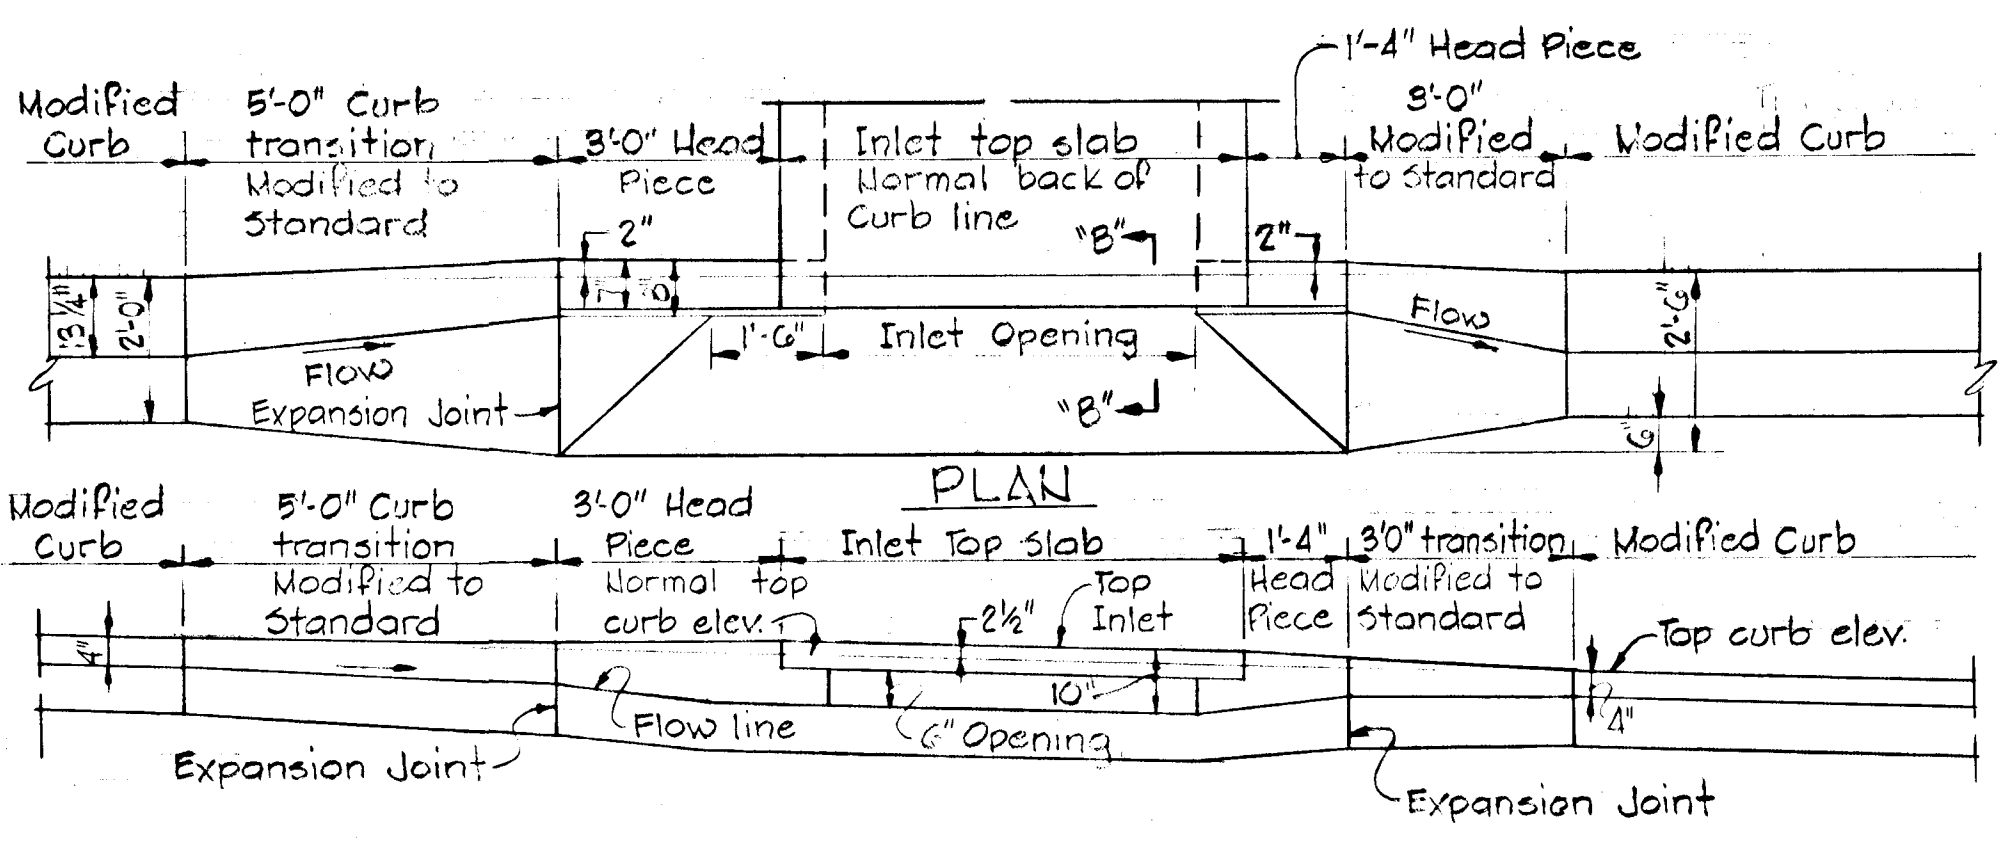 1'-4" Head Piece
Modified
Curb
5'-0" Curb
transition
Modified to
Standard
3'-0" Head
Piece
Inlet top slab
Normal back of
Curb line
3'-0"
Modified
to Standard
Modified Curb
2"
"B"
2"
13 1/4"
2'-0"
7"
8"
1'-6"
Inlet Opening
Flow
2'-6"
Flow
Expansion Joint
"B"
6"
PLAN
Modified
Curb
5'-0" Curb
transition
Modified to
Standard
3'-0" Head
Piece
Normal top
curb elev.
Inlet Top Slab
Top
Inlet
1'-4"
Head
Piece
3'0" transition
Modified to
Standard
Modified Curb
4"
2½"
Top curb elev.
10"
4"
Flow line
6" Opening
Expansion Joint
Expansion Joint